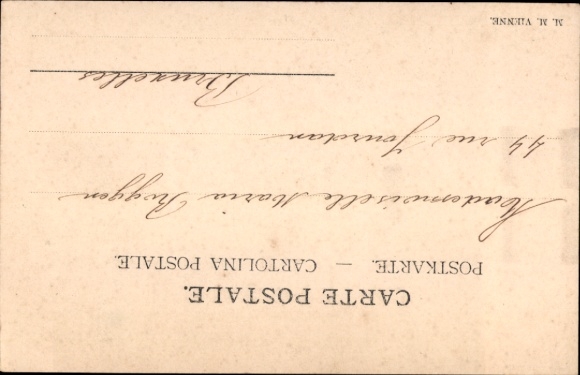 CARTE POSTALE.
POSTKARTE. — CARTOLINA POSTALE.
Mademoiselle Maria Roggen
44 rue Jourdan
Bruxelles
M. M. VIENNE.